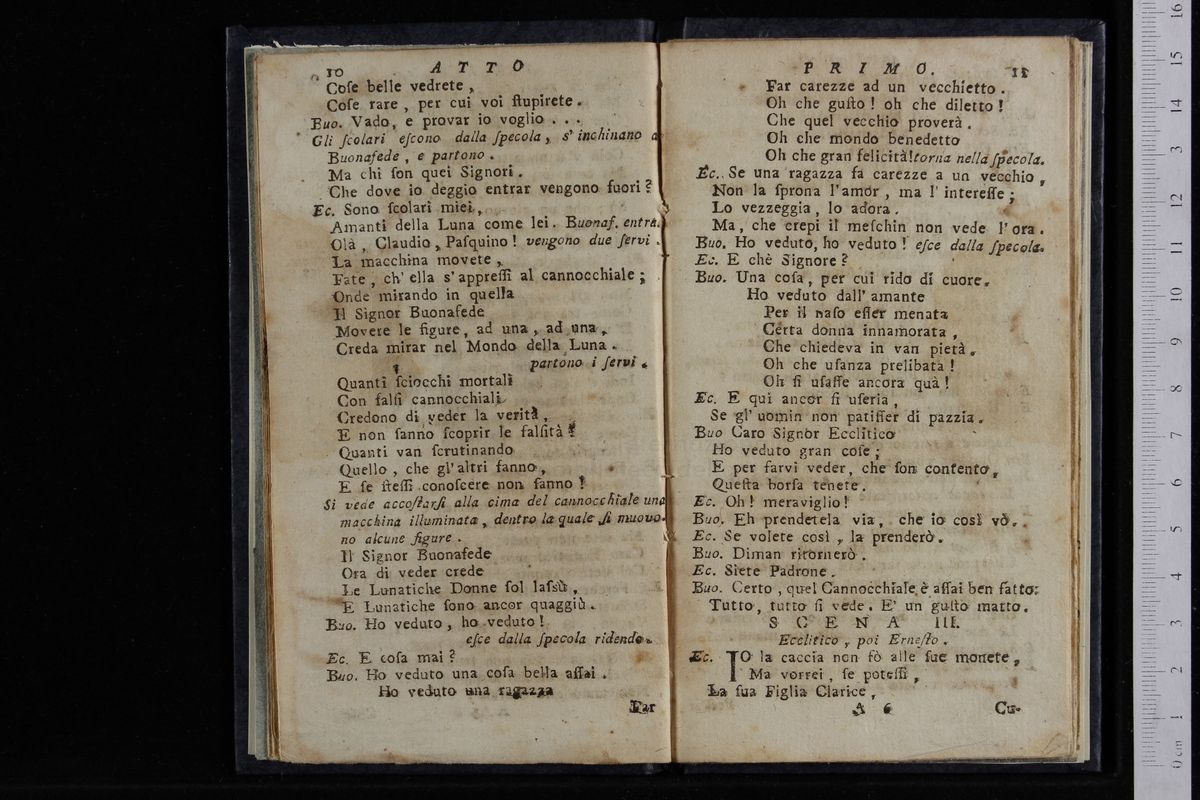 10 ATTO
Coſe belle vedrete,
Coſe rare, per cui voi ſtupirete.
Buo. Vado, e provar io voglio . . .
Gli ſcolari eſcono dalla ſpecola, s' inchinano a
Buonafede, e partono.
Ma chi ſon quei Signori.
Che dove io deggio entrar vengono fuori?
Ec. Sono ſcolari miei,
Amanti della Luna come lei. Buonaf. entra.
Olà, Claudio, Paſquino! vengono due ſervi.
La macchina movete,
Fate, ch' ella s' appreſſi al cannocchiale;
Onde mirando in quella
Il Signor Buonafede
Movere le figure, ad una, ad una,
Creda mirar nel Mondo della Luna.
partono i ſervi.
Quanti ſciocchi mortali
Con falſi cannocchiali
Credono di veder la verità,
E non ſanno ſcoprir le falſità!
Quanti van ſcrutinando
Quello, che gl' altri fanno,
E ſe ſteſſi conoſcere non ſanno!
Si vede accoſtarſi alla cima del cannocchiale una
macchina illuminata, dentro la quale ſi muovo-
no alcune figure.
Il Signor Buonafede
Ora di veder crede
Le Lunatiche Donne ſol laſsù,
E Lunatiche ſono ancor quaggiù.
Buo. Ho veduto, ho veduto!
eſce dalla ſpecola ridendo.
Ec. E coſa mai?
Buo. Ho veduto una coſa bella aſſai.
Ho veduto una ragazza
Far
PRIMO. 11
Far carezze ad un vecchietto.
Oh che guſto! oh che diletto!
Che quel vecchio proverà.
Oh che mondo benedetto
Oh che gran felicità! torna nella ſpecola.
Ec. Se una ragazza fa carezze a un vecchio,
Non la ſprona l' amor, ma l' intereſſe;
Lo vezzeggia, lo adora.
Ma, che crepi il meſchin non vede l' ora.
Buo. Ho veduto, ho veduto! eſce dalla ſpecola.
Ec. E chè Signore?
Buo. Una coſa, per cui rido di cuore.
Ho veduto dall' amante
Per il naſo eſſer menata
Certa donna innamorata,
Che chiedeva in van pietà.
Oh che uſanza prelibata!
Oh ſi uſaſſe ancora quà!
Ec. E qui ancor ſi uſeria,
Se gl' uomin non patiſſer di pazzia.
Buo Caro Signor Ecclitico
Ho veduto gran coſe;
E per farvi veder, che ſon contento,
Queſta borſa tenete.
Ec. Oh! meraviglio!
Buo. Eh prendetela via, che io così vò.
Ec. Se volete così, la prenderò.
Buo. Diman ritornerò.
Ec. Siete Padrone.
Buo. Certo, quel Cannocchiale è aſſai ben fatto:
Tutto, tutto ſi vede. E' un guſto matto.
SCENA III.
Ecclitico, poi Erneſto.
Ec. IO la caccia non fò alle ſue monete,
Ma vorrei, ſe poteſſi,
La ſua Figlia Clarice,
A 6 Cu-
16
15
14
13
12
11
10
9
8
7
6
5
4
3
2
1
0 cm